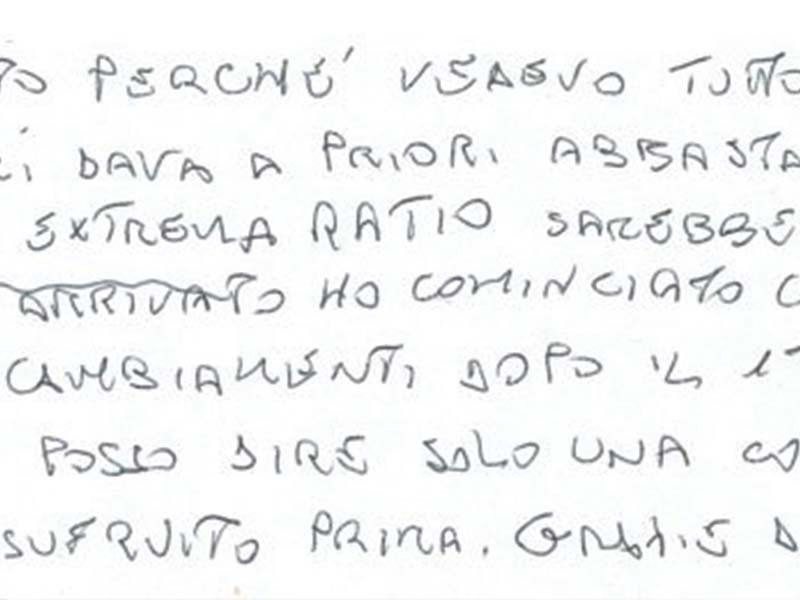 TO PERCHÉ VEDEVO TUTTO
CI DAVA A PRIORI ABBASTA
EXTREMA RATIO SAREBBE
ARRIVATO HO COMINCIATO C
CAMBIAMENTI DOPO IL 1°
POSSO DIRE SOLO UNA CO
SUFRUITO PRIMA. GRAZIE D